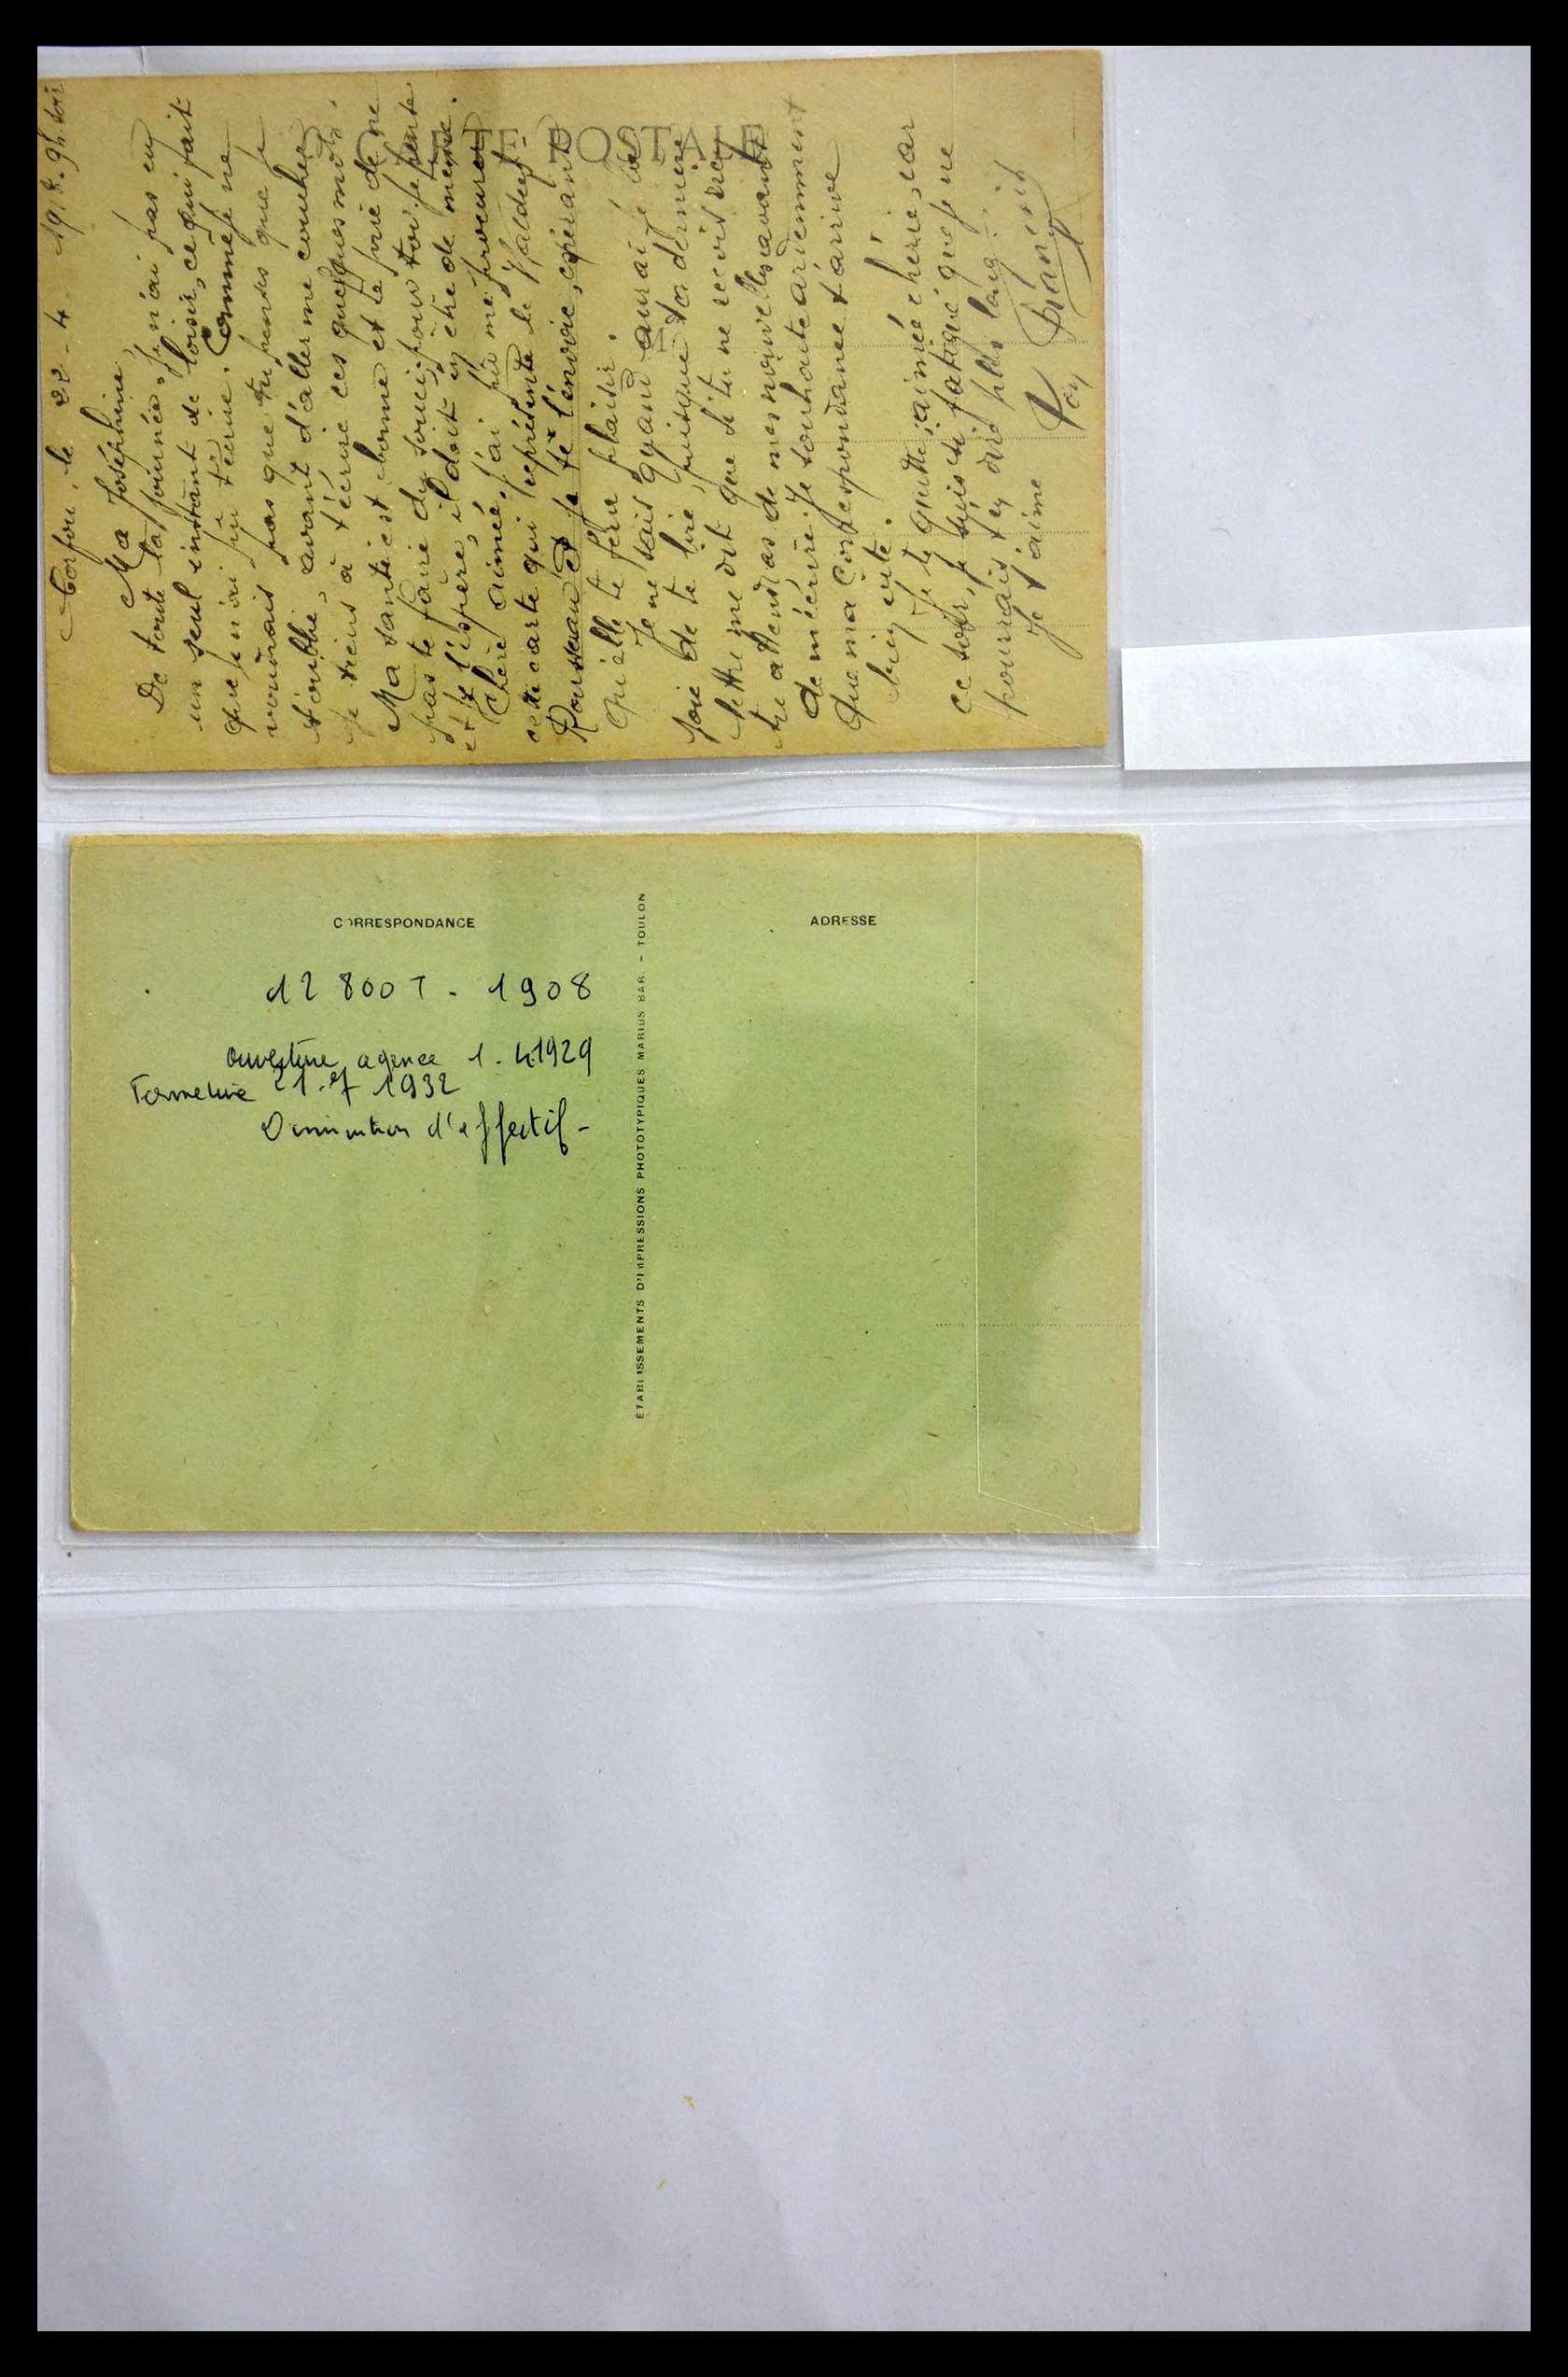 Corfou, le 22-4-1918. 9h. soir
Ma Joséphine,
De toute la journée, je n'ai pas eu
un seul instant de loisir, ce qui fait
que je n'ai pu t'écrire. Comme je ne
voudrais pas que tu penses que je
t'oublie, avant d'aller me coucher
je tiens à t'écrire ces quelques mots.
Ma santé est bonne et te prie de ne
pas te faire de souci, pour toi je pense
et je l'espère, il doit en être de même.
Chère aimée, j'ai pu me procurer
cette carte qui représente le Waldeck-
Rousseau et je te l'envoie, espérant
qu'elle te fera plaisir.
Je ne sais quand aurai-je la
joie de te lire, puisque ta dernière
lettre me dit que si tu ne reçois rien
tu attendras de mes nouvelles avant
de m'écrire. Je souhaite ardemment
que ma correspondance t'arrive
bien vite.
Je te quitte, aimée chérie, car
ce soir, je suis si fatigué que je ne
pourrais t'en dire plus long.
Je t'aime
Ton
CARTE POSTALE
CORRESPONDANCE
ADRESSE
12 800 T - 1908
Ouverture agence 1.4.1929
Fermeture 21.7 1932
Diminution d'effectif -
ÉTABLISSEMENTS D'IMPRESSIONS PHOTOTYPIQUES MARIUS BAR. - TOULON